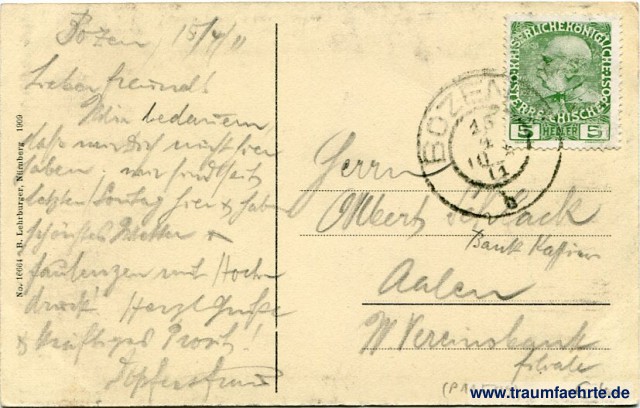 Bozen 15/4/11
Lieber Freund!
Wir bedauern
daß wir Dich nicht
haben, wir sind seit
letzten Sontag hier & haben
schönstes Wetter &
faulenzen mit Hoch-
druck! Herzl Grüße
& kräftiges Prosit!
No. 16664 R. Lehrburger, Nürnberg 1909
KAISERLICHE KÖNIGLICHE ÖSTERREICHISCHE POST
5 HELLER 5
BOZEN
11
b
Herrn
Albert
Bank Kassier
Aalen
W Vereinsbank
Filiale
www.traumfaehrte.de